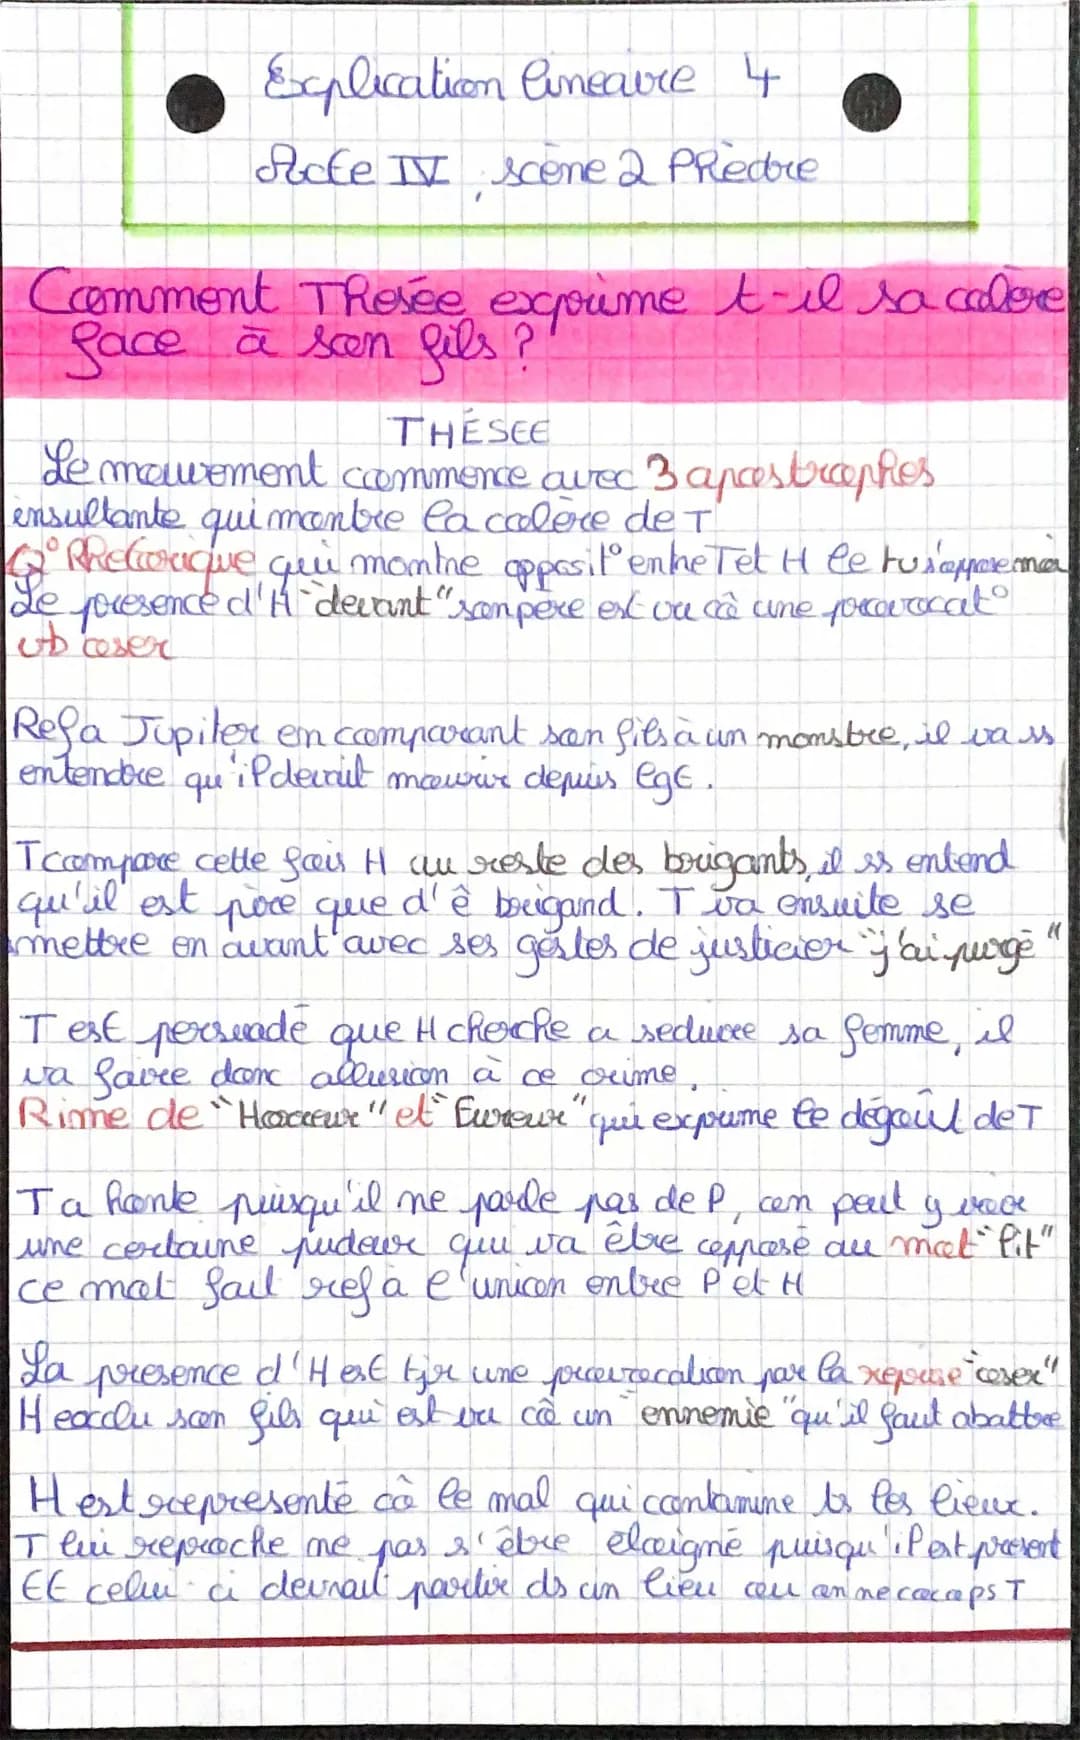 Explication lineaire 4
Acte IV, scène 2 Phèdre
Comment Thesée exprime t-il sa colère
face à son fils ?
THÉSEE
Le mouvement commence avec 3 apostrophes
insultante qui montre la colère de T
Q° Rhetorique qui montre opposit° entre T et H le tu s'oppose moi
Le presence d'H "devant" son père est vu cô une provocat°
vb oser
Ref a Jupiter en comparant son fils à un monstre, il va ss
entendre qu'il devait mourir depuis lgt.
T compare cette fois H au reste des brigants, il ss entend
qu'il est pire que d'ê brigand. T va ensuite se
mettre en avant avec ses gestes de justicier "j'ai purgé"
T est persuadé que H cherche a seduire sa femme, il
va faire donc allusion à ce crime.
Rime de "Horreur" et "Fureur" qui exprime le dégoût de T
T a honte puisqu'il ne parle pas de P, on peut y voir
une certaine pudeur qui va être opposé au mot "lit"
ce mot fait ref à l'union entre P et H
La presence d'H est tjr une provocation par la reprise "oser"
H exclu son fils qui est vu cô un "ennemie" qu'il faut abattre
H est representé cô le mal qui contamine ts les lieux.
T lui reproche ne pas s'être éloigné puisqu'il est present
Et celui-ci devrait partir ds un lieu ou on ne T